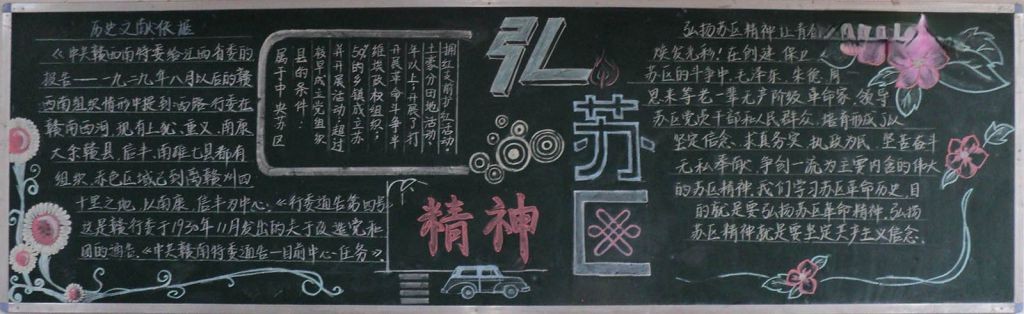 历史文献依据
《中共赣西南特委给江西省委的
报告——一九二九年八月以后的赣
西南组织情形中提到:西路行委在
赣南西河,现有上犹、重义、南康
大余赣县、信丰、南雄七县都有
组织,赤色区域已到离赣州四
十里之地,以南康、信丰为中心。《行委通告第四号》
这是赣行委于1930年11月发出的关于改造党和
团的通告。《中共赣南特委通告—目前中心任务》
拥红支前扩红活动
土委分田地活动,
年以上;开展了打
开展革命斗争半
维埃政权组织,
50%的乡镇成立苏
并开展活动;超过
较早成立党组织
县的条件:
属于中央苏区
弘
苏
区
精神
弘扬苏区精神让青
焕发光彩!在创建、保卫
苏区的斗争中,毛泽东、朱德、周
恩来等老一辈无产阶级革命家,领导
苏区党员干部和人民群众,培育形成了以
坚定信念、求真务实、执政为民、坚苦奋斗
无私奉献、争创一流为主要内含的伟大
的苏区精神。我们学习苏区革命历史,目
的就是要弘扬苏区革命精神。弘扬
苏区精神就是要坚定共产主义信念。